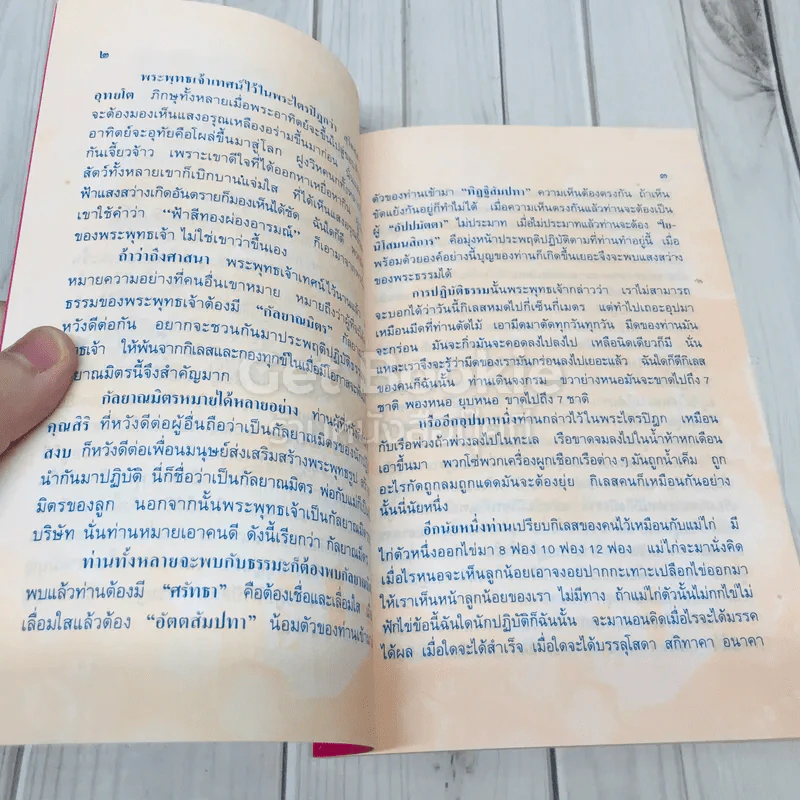 ๒
พระพุทธเจ้าเทศน์ไว้ในพระไตรปิฎกว่า
อุทยโต ภิกษุทั้งหลายเมื่อพระอาทิตย์จะขึ้น
จะต้องมองเห็นแสงอรุณเหลืองอร่ามขึ้นมาก่อน
อาทิตย์จะอุทัยคือโผล่ขึ้นมาสู่โลก ฝูงวิหคนก
กันเจี๊ยวจ๊าว เพราะเขาดีใจที่ได้ออกหาเหยื่อหากิน
สัตว์ทั้งหลายเขาก็เบิกบานแจ่มใส ที่ได้เห็นแสง
ฟ้าแสงสว่างเกิดอันตรายก็มองเห็นได้ชัด ฉันใดก็ดี
เขาใช้คำว่า “ฟ้าสีทองผ่องอารมณ์” ก็เอามาจาก
ของพระพุทธเจ้า ไม่ใช่เขาว่าขึ้นเอง
ถ้าว่าถึงศาสนา พระพุทธเจ้าเทศน์ไว้นานแล้ว
หมายความอย่างที่คนอื่นเขาหมาย หมายถึงว่าผู้ที่
ธรรมของพระพุทธเจ้าต้องมี “กัลยาณมิตร”
หวังดีต่อกัน อยากจะชวนกันมาประพฤติปฏิบัติ
ธเจ้า ให้พ้นจากกิเลสและกองทุกข์ในเมื่อมีโอกาส
ยาณมิตรนี้จึงสำคัญมาก
กัลยาณมิตรหมายได้หลายอย่าง ท่านผู้ที่
คุณสิริ ที่หวังดีต่อผู้อื่นถือว่าเป็นกัลยาณมิตรของ
สงบ ก็หวังดีต่อเพื่อนมนุษย์ส่งเสริมสร้างพระพุทธรูป
นำกันมาปฏิบัติ นี่ก็ชื่อว่าเป็นกัลยาณมิตร พ่อกับแม่ก็เป็น
มิตรของลูก นอกจากนั้นพระพุทธเจ้าเป็นกัลยาณมิตร
บริษัท นั่นท่านหมายเอาคนดี ดังนี้เรียกว่า กัลยาณมิตร
ท่านทั้งหลายจะพบกับธรรมะก็ต้องพบกัลยาณมิตร
พบแล้วท่านต้องมี “ศรัทธา” คือต้องเชื่อและเลื่อมใส
เลื่อมใสแล้วต้อง “อัตตสัมปทา” น้อมตัวของท่านเข้ามา
๓
ตัวของท่านเข้ามา “ทิฏฐิสัมปทา” ความเห็นต้องตรงกัน ถ้าเห็น
ขัดแย้งกันอยู่ก็ทำไม่ได้ เมื่อความเห็นตรงกันแล้วท่านจะต้องเป็น
ผู้ “อัปปมัตตา” ไม่ประมาท เมื่อไม่ประมาทแล้วท่านจะต้อง “โย-
นิโสมนสิการ” คือมุ่งหน้าประพฤติปฏิบัติตามที่ท่านทำอยู่นี้ เมื่อ
พร้อมด้วยองค์อย่างนี้บุญของท่านก็เกิดขึ้นเยอะจึงจะพบแสงสว่าง
ของพระธรรมได้
การปฏิบัติธรรมนั้นพระพุทธเจ้ากล่าวว่า เราไม่สามารถ
จะบอกได้ว่าวันนี้กิเลสหมดไปกี่เซ็นกี่เมตร แต่ทำไปเถอะอุปมา
เหมือนมีดที่ท่านตัดไม้ เอามีดมาตัดทุกวันทุกวัน มีดของท่านมัน
จะกร่อน มันจะกิ่วมันจะคอดลงไปลงไป เหลือนิดเดียวก็มี นั่น
แหละเราจึงจะรู้ว่ามีดของเรามันกร่อนลงไปเยอะแล้ว ฉันใดก็ดีกิเลส
ของคนก็ฉันนั้น ท่านเดินจงกรม ขวาย่างหนอมันจะขาดไปถึง 7
ชาติ พองหนอ ยุบหนอ ขาดไปถึง 7 ชาติ
หรืออีกอุปมาหนึ่งท่านกล่าวไว้ในพระไตรปิฎก เหมือน
กับเรือพ่วงถ้าพ่วงลงไปในทะเล เรือขาดจมลงไปในน้ำห้าหกเดือน
เอาขึ้นมา พวกโซ่พวกเครื่องผูกเชือกเรือต่าง ๆ มันถูกน้ำเค็ม ถูก
อะไรกัดถูกลมถูกแดดมันจะต้องยุ่ย กิเลสคนก็เหมือนกันอย่าง
นั้นนี่นัยหนึ่ง
อีกนัยหนึ่งท่านเปรียบกิเลสของคนไว้เหมือนกับแม่ไก่ มี
ไก่ตัวหนึ่งออกไข่มา 8 ฟอง 10 ฟอง 12 ฟอง แม่ไก่จะมานั่งคิด
เมื่อไรหนอจะเห็นลูกน้อยเอาจงอยปากกะเทาะเปลือกไข่ออกมา
ให้เราเห็นหน้าลูกน้อยของเรา ไม่มีทาง ถ้าแม่ไก่ตัวนั้นไม่กกไข่ไม่
ฟักไข่ข้อนี้ฉันใดนักปฏิบัติก็ฉันนั้น จะมานอนคิดเมื่อไรจะได้มรรค
ได้ผล เมื่อใดจะได้สำเร็จ เมื่อใดจะได้บรรลุโสดา สกิทาคา อนาคา